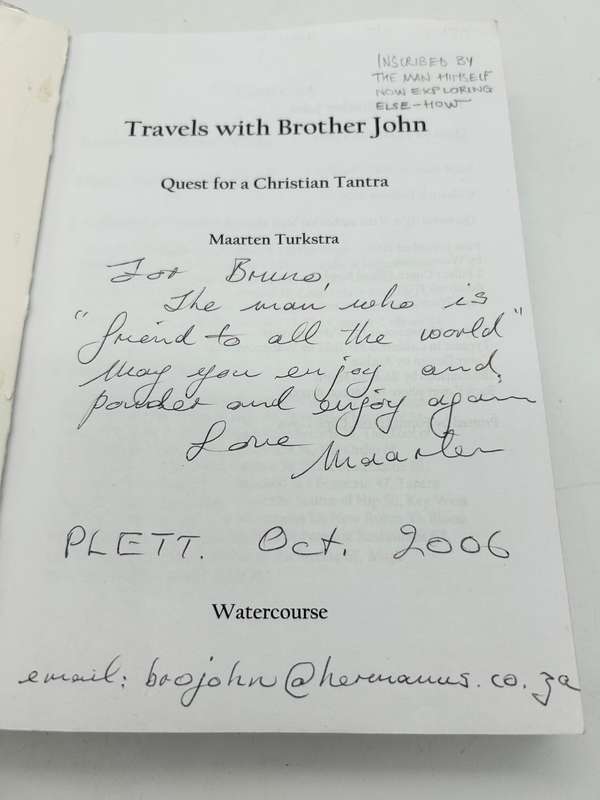 INSCRIBED BY
THE MAN HIMSELF
NOW EXPLORING
ELSE-HOW
Travels with Brother John
Quest for a Christian Tantra
Maarten Turkstra
For Bruno,
The man who is
"friend to all the world"
May you enjoy and,
ponder and enjoy again
Love
Maarten
PLETT. Oct. 2006
Watercourse
email: brojohn@hermanus.co.za